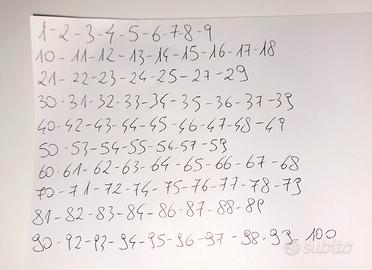 1-2-3-4-5-6-7-8-9
10-11-12-13-14-15-16-17-18
21-22-23-24-25-27-29
30-31-32-33-34-35-36-37-39
40-42-43-44-45-46-47-48-49
50-53-54-55-56-57-59
60-61-62-63-64-65-66-67-68
70-71-72-74-75-76-77-78-79
81-82-83-84-86-87-88-89
90-92-93-94-95-96-97-98-99-100
subito